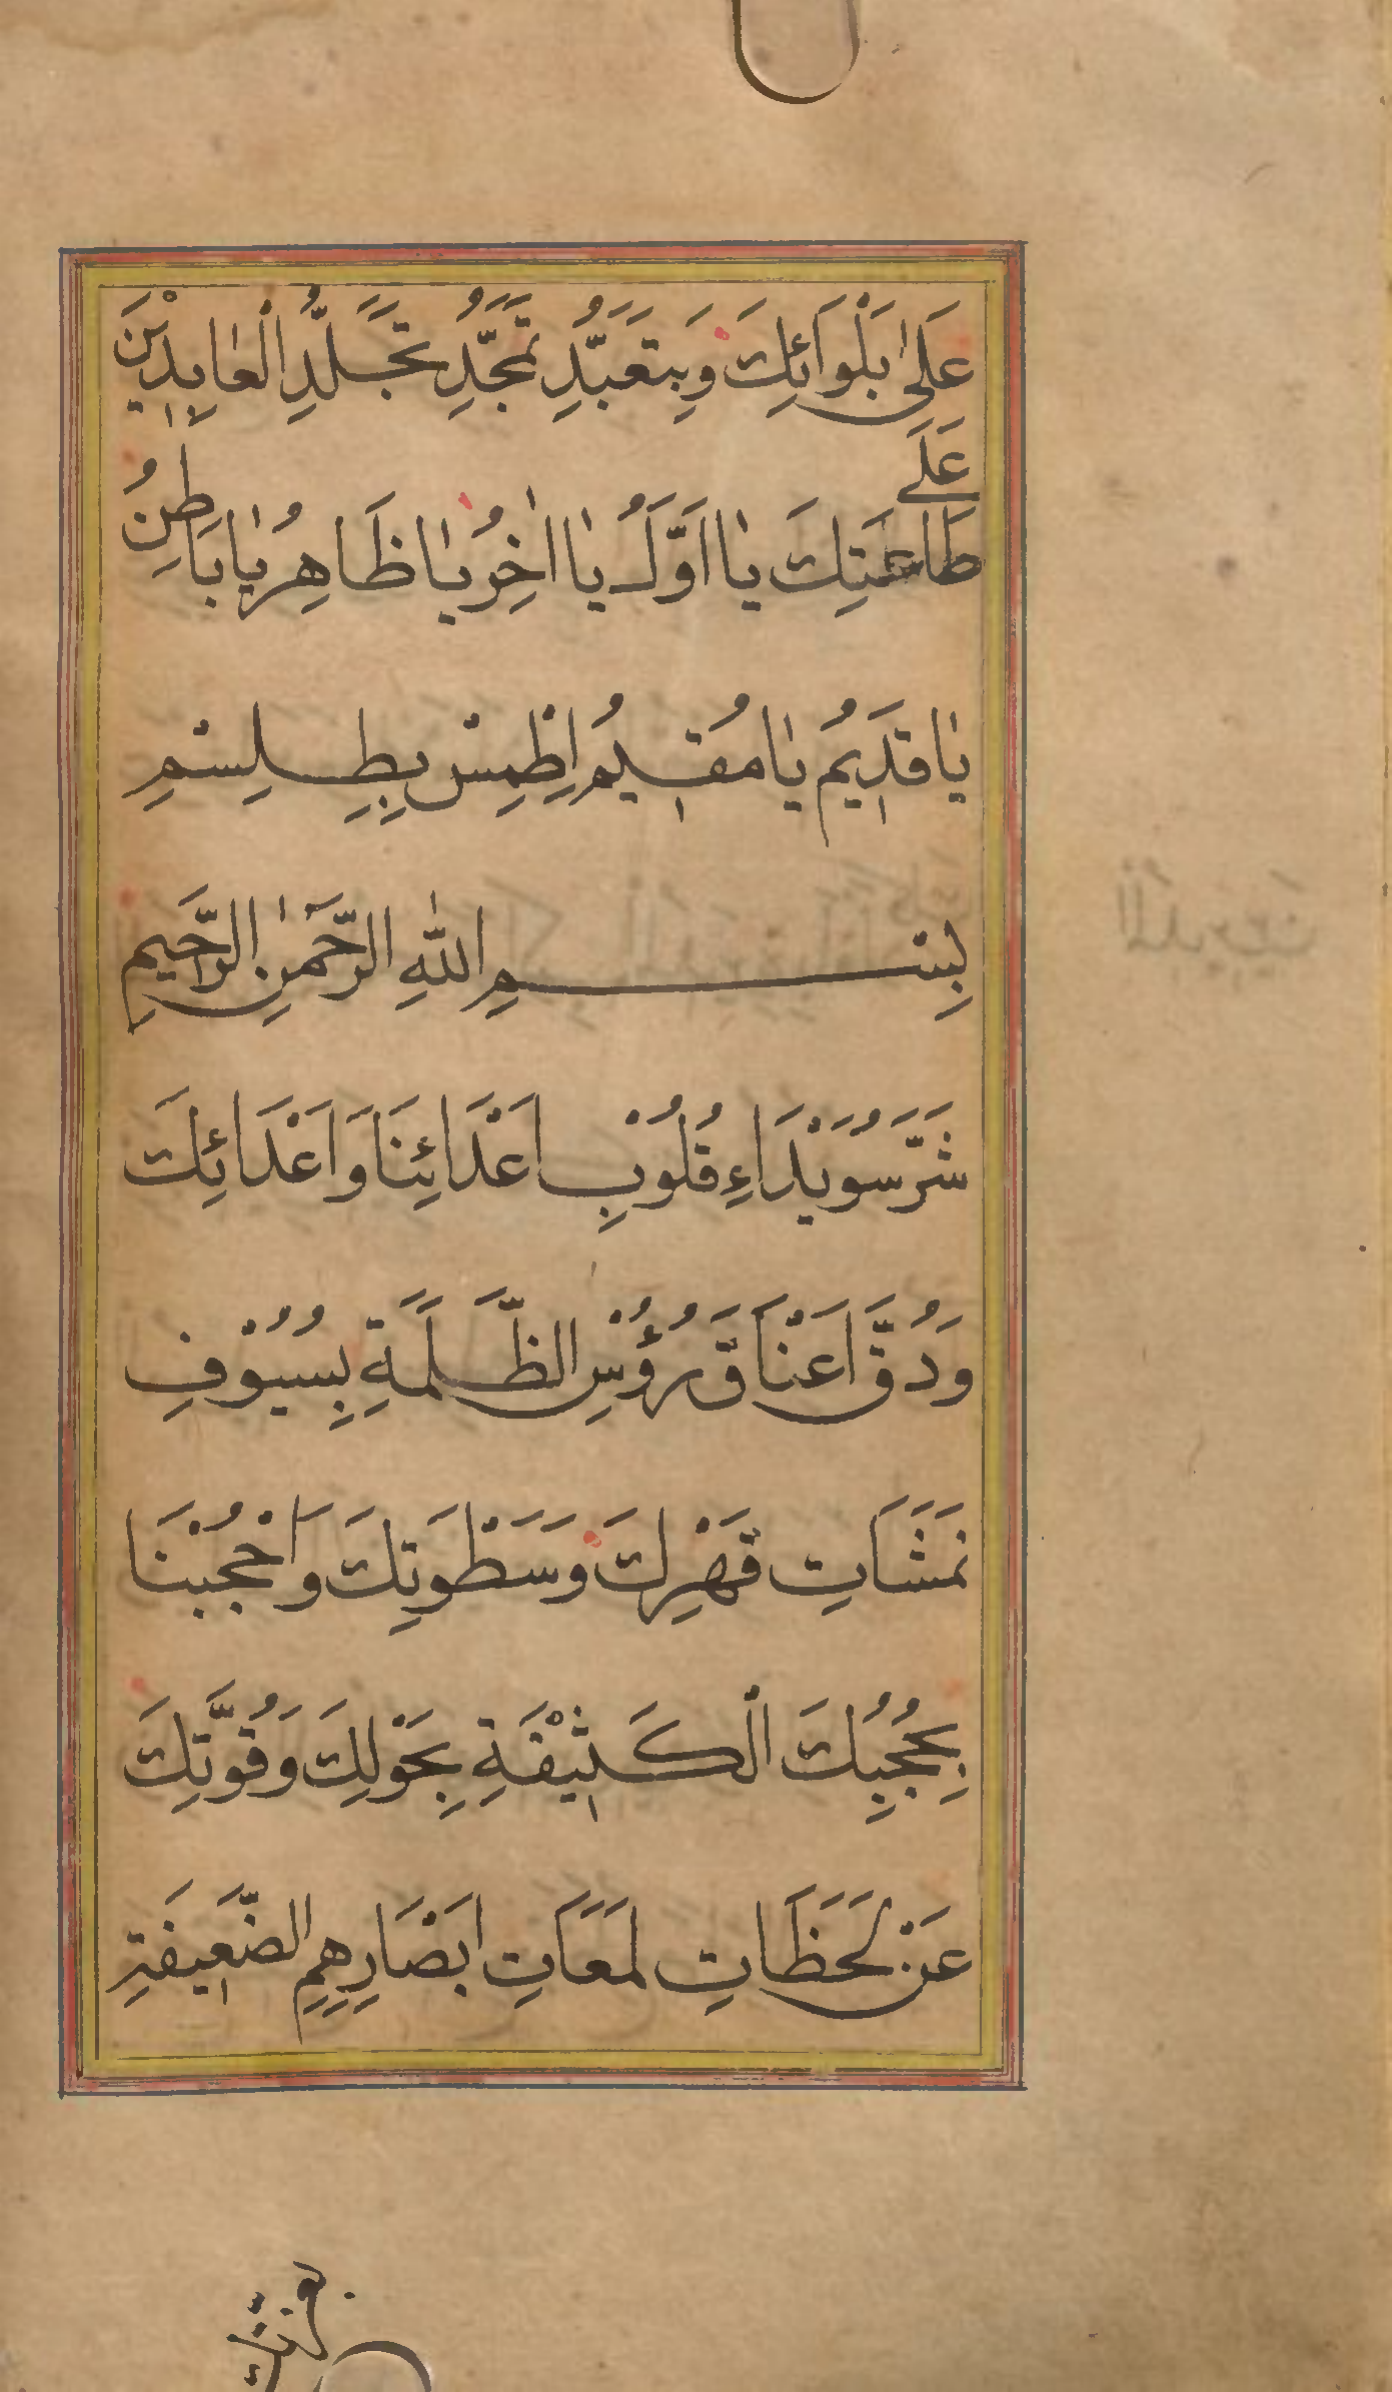 عَلٰى بَلْوَائِكَ وَبِتَعَبُّدِ تَمَجُّدِ تَجَلُّدِ الْعٰابِدِيْنَ
عَلَى
طَاعَتِكَ يٰا اَوَّلُ يٰا اٰخِرُ يٰا ظَاهِرُ يٰا بَاطِنُ
يٰا قَدِيمُ يٰا مُقِيمُ اِطْمِسْ بِطِلِسْمِ
بِسْمِ اللّٰهِ الرَّحْمٰنِ الرَّحِيمِ
شَرَّ سُوَيْدَاءِ قُلُوْبِ اَعْدَائِنَا وَاَعْدَائِكَ
وَدُقَّ اَعْنَاقَ رُؤُسِ الظَّلَمَةِ بِسُيُوْفِ
نَمَشَاتِ قَهْرِكَ وَسَطْوَتِكَ وَاحْجُبْنَا
بِحُجُبِكَ الْكَثِيْفَةِ بِحَوْلِكَ وَقُوَّتِكَ
عَنْ لَحَظَاتِ لَمَعَاتِ اَبْصَارِهِمِ الضَّعِيفَةِ